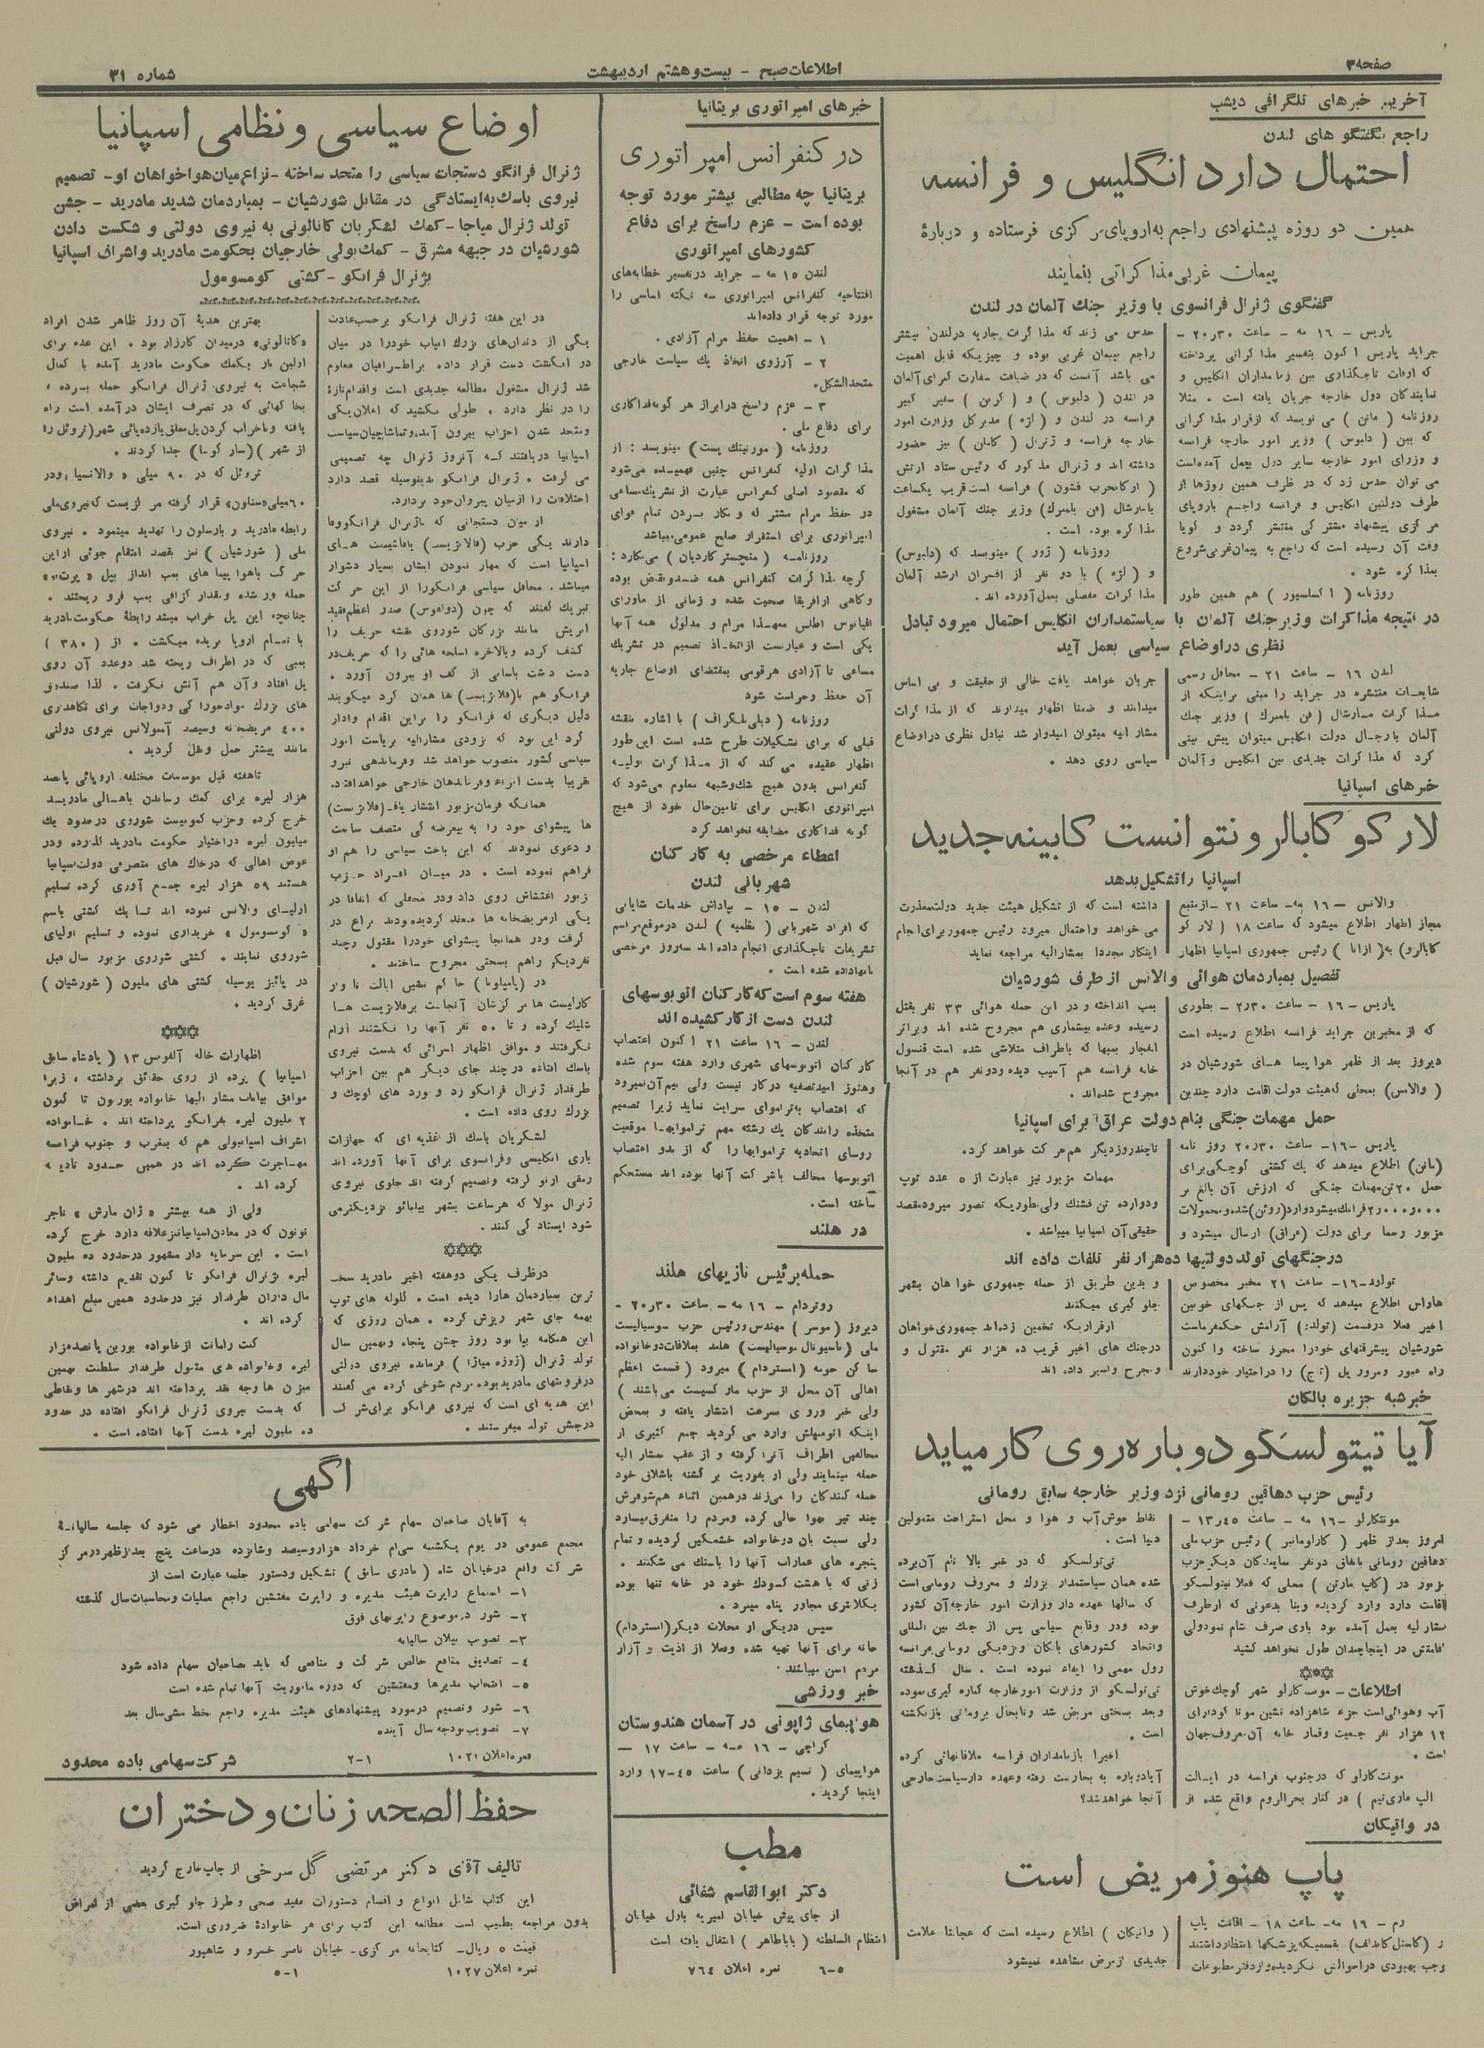 صفحه ۳
اطلاعات صبح - بیست و هشتم اردیبهشت
شماره ۳۱
آخرین خبرهای تلگرافی دیشب
راجع بگفتگو های لندن
احتمال دارد انگلیس و فرانسه
همین دو روزه پیشنهادی راجع به اروپای مرکزی فرستاده و دربارهٔ
پیمان غربی مذاکراتی بنمایند
گفتگوی ژنرال فرانسوی با وزیر جنك آلمان در لندن
پاریس - ۱۶ مه - ساعت ۲۰٫۳۰ -
جراید پاریس اکنون بتفسیر مذاکراتی پرداخته
که اوقات تاجگذاری بین زمامداران انگلیس و
نمایندگان دول خارجه جریان یافته است . مثلا
روزنامه ( ماتن ) می نویسد که از قرار مذاکراتی
که بین ( دلبوس ) وزیر امور خارجه فرانسه
و وزرای امور خارجه سایر دول بعمل آمده است
می توان حدس زد که در ظرف همین روزها از
طرف دولتین انگلیس و فرانسه راجع باروپای
مرکزی پیشنهاد مشترکی منتشر گردد و گویا
وقت آن رسیده است که راجع به پیمان غربی شروع
بمذاکره شود .
روزنامه ( اکسلسیور ) هم همین طور
حدس می زند که مذاکرات جاریه در لندن بیشتر
راجع بپیمان غربی بوده و چیزیکه قابل اهمیت
می باشد آنست که در ضیافت سفارت کبرای آلمان
در لندن ( دلبوس ) و ( کربن ) سفیر کبیر
فرانسه در لندن و ( لژه ) مدیر کل وزارت امور
خارجه فرانسه و ژنرال ( گاملن ) نیز حضور
داشته اند و ژنرال مذکور که رئیس ستاد ارتش
( ارکانحرب قشون ) فرانسه است قریب یکساعت
با مارشال (فن بلمبرك) وزیر جنك آلمان مشغول
مذاکره بوده است .
روزنامه ( ژور ) مینویسد که (دلبوس)
و ( لژه ) با دو نفر از افسران ارشد آلمان
مذاکرات مفصلی بعمل آورده اند .
در نتیجه مذاکرات وزیر جنك آلمان با سیاستمداران انگلیس احتمال میرود تبادل
نظری در اوضاع سیاسی بعمل آید
لندن ۱۶ - ساعت ۲۱ - محافل رسمی
شایعات منتشره در جراید را مبنی براینکه از
مذاکرات مارشال ( فن بلمبرك ) وزیر جنك
آلمان با رجال دولت انگلیس میتوان پیش بینی
کرد که مذاکرات جدیدی بین انگلیس و آلمان
جریان خواهد یافت خالی از حقیقت و بی اساس
میدانند و ضمنا اظهار میدارند که از مذاکرات
مشار الیه میتوان امیدوار شد تبادل نظری در اوضاع
سیاسی روی دهد .
خبرهای اسپانیا
لارکو کابالرو نتوانست کابینه جدید
اسپانیا را تشکیل بدهد
والانس - ۱۶ مه - ساعت ۲۱ - از منبع
مجاز اظهار اطلاع میشود که ساعت ۱۸ ( لارکو
کابالرو) به ( ازانا ) رئیس جمهوری اسپانیا اظهار
داشته است که از تشکیل هیئت جدید دولت معذرت
می خواهد و احتمال میرود رئیس جمهور برای انجام
اینکار مجددا بمشارالیه مراجعه نماید
تفصیل بمباردمان هوائی والانس از طرف شورشیان
پاریس - ۱۶ - ساعت ۲٫۳۰ - بطوری
که از مخبرین جراید فرانسه اطلاع رسیده است
دیروز بعد از ظهر هواپیما های شورشیان در
( والانس ) بمحلی که هیئت دولت اقامت دارد چندین
بمب انداخته و در این حمله هوائی ۳۳ نفر بقتل
رسیده و عده بیشماری هم مجروح شده اند و براثر
انفجار بمبها که باطراف متلاشی شده است قنسول
خانه فرانسه هم آسیب دیده و دو نفر هم در آنجا
مجروح شده اند .
حمل مهمات جنگی بنام دولت عراق برای اسپانیا
پاریس - ۱۶ - ساعت ۲۰٫۳۰ روز نامه
(ماتن) اطلاع میدهد که یك کشتی کوچکی برای
حمل ۲۰ تن مهمات جنگی که ارزش آن بالغ بر
۲٫۰۰۰٫۰۰۰ فرانك میشود وارد (روئن) شده و محمولات
مزبور رسما برای دولت (عراق) ارسال میشود و
تا چند روز دیگر هم حرکت خواهد کرد.
مهمات مزبور نیز عبارت از ۵ عدد توپ
و دوازده تن فشنك ولی طوریکه تصور میرود مقصد
حقیقی آن اسپانیا میباشد .
در جنگهای تولد دولتیها ده هزار نفر تلفات داده اند
تولد - ۱۶ - ساعت ۲۱ مخبر مخصوص
هاواس اطلاع میدهد که پس از جنگهای خونین
اخیر فعلا در قسمت (تولد) آرامش حکمفرماست
شورشیان پیشرفتهای خود را محرز ساخته و اکنون
راه عبور و مرور پل (تاج) را در اختیار خود دارند
و بدین طریق از حمله جمهوری خواهان بشهر
جلو گیری میکنند
از قراریکه تخمین زده اند جمهوری خواهان
در جنك های اخیر قریب ده هزار نفر مقتول و
مجرح و اسیر داده اند
خبر شبه جزیره بالکان
آیا تیتولسکو دوباره روی کار میاید
رئیس حزب دهاقین رومانی نزد وزیر خارجه سابق رومانی
مونتکارلو - ۱۶ مه - ساعت ۱۳٫۴۵ -
امروز بعد از ظهر ( کاراومانیر ) رئیس حزب ملی
دهاقین رومانی باتفاق دو نفر نمایندگان دیگر حزب
مزبور در (کاپ مارتن) محلی که فعلا تیتولسکو
اقامت دارد وارد گردیده و بنا بدعوتی که از طرف
مشار الیه بعمل آمده بود باوی صرف شام نمود ولی
اقامتش در اینجا چندان طول نخواهد کشید
***
اطلاعات - مونت کارلو شهر کوچك خوش
آب و هوائی است جزء شاهزاده نشین موناکو دارای
۱۲ هزار نفر جمعیت و قمار خانه آن معروف جهان
است .
مونت کارلو که در جنوب فرانسه در ایالت
الپ ماری تیم ) در کنار بحرالروم واقع شده از
نقاط خوش آب و هوا و محل استراحت متمولین
دنیا است .
تی تولسکو که در خبر بالا نام آن برده
شده همان سیاستمدار بزرك و معروف رومانی است
که سالها عهده دار وزارت امور خارجه آن کشور
بوده و در وقایع سیاسی پس از جنك بین المللی
و اتحاد کشورهای بالکان و نزدیکی رومانی بفرانسه
رول مهمی را ایفاء نموده است . سال گذشته
تی تولسکو از وزارت امور خارجه کناره گیری نموده
و بعد بسختی مریض شد و تا بحال برومانی باز نگشته
است .
اخیرا با زمامداران فرانسه ملاقاتهائی کرده
آیا دوباره به بخارست رفته و عهده دار سیاست خارجی
آنجا خواهد شد؟
در واتیکان
پاپ هنوز مریض است
رم - ۱۶ مه - ساعت ۱۸ - اقامت پاپ
در (کاستل گاندلف) بقسمیکه پزشکها انتظار داشتند
موجب بهبودی در احوالش نگردیده و از دفتر مطبوعات
( واتیکان ) اطلاع رسیده است که عجالتا علامت
جدیدی از مرض مشاهده نمیشود
خبرهای امپراتوری بریتانیا
در کنفرانس امپراتوری
بریتانیا چه مطالبی بیشتر مورد توجه
بوده است - عزم راسخ برای دفاع
کشورهای امپراتوری
لندن ۱۵ مه - جراید در تفسیر خطابه های
افتتاحیه کنفرانس امپراتوری سه نکته اساسی را
مورد توجه قرار داده اند
۱ - اهمیت حفظ مرام آزادی .
۲ - آرزوی اتخاذ یك سیاست خارجی
متحدالشکل .
۳ - عزم راسخ در ابراز هر گونه فداکاری
برای دفاع ملی .
روزنامه ( مورنینك پست ) مینویسد : از
مذاکرات اولیه کنفرانس چنین فهمیده می شود
که مقصود اصلی کنفرانس عبارت از تشریك مساعی
در حفظ مرام مشترك و بکار بردن تمام قوای
امپراتوری برای استقرار صلح عمومی میباشد
روزنامه ( منچستر گاردیان ) می نگارد :
گرچه مذاکرات کنفرانس همه ضد و نقیض بوده
و گاهی از افریقا صحبت شده و زمانی از ماورای
اقیانوس اطلس معهذا مرام و مدلول همه آنها
یکی است و عبارتست از اتخاذ تصمیم در تشریك
مساعی تا آزادی هر قومی بمقتضای اوضاع جاریه
آن حفظ و حراست شود
روزنامه ( دیلی تلگراف ) با اشاره بنقشه
قبلی که برای تشکیلات طرح شده است این طور
اظهار عقیده می کند که از مذاکرات اولیه
کنفرانس بدون هیچ شك و شبهه معلوم می شود که
امپراتوری انگلیس برای تامین حال خود از هیچ
گونه فداکاری مضایقه نخواهد کرد
اعطاء مرخصی به کارکنان
شهربانی لندن
لندن - ۱۵ - بپاداش خدمات شایانی
که افراد شهربانی ( نظمیه ) لندن در موقع مراسم
تشریفات تاجگذاری انجام داده اند سه روز مرخصی
بآنها داده شده است .
هفته سوم است که کارکنان اتوبوسهای
لندن دست از کار کشیده اند
لندن - ۱۶ ساعت ۲۱ اکنون اعتصاب
کارکنان اتوبوسهای شهری وارد هفته سوم شده
و هنوز امید تصفیه در کار نیست ولی بیم آن نمیرود
که اعتصاب به تراموای سرایت نماید زیرا تصمیم
متخذه رانندگان یك رشته مهم تراموایها موقعیت
روسای اتحادیه تراموایها را که از بدو اعتصاب
اتوبوسها مخالف با شرکت آنها بوده اند مستحکم
ساخته است .
در هلند
حمله برئیس نازیهای هلند
روتردام - ۱۶ مه - ساعت ۲۰٫۳۰ -
دیروز ( موسر ) مهندس و رئیس حزب سوسیالیست
ملی (ناسیونال سوسیالیست) هلند بملاقات دو خانواده
ساکن حومه (امستردام ) میرود ( قسمت اعظم
اهالی آن محل از حزب مارکسیست می باشند )
ولی خبر ورود وی سرعت انتشار یافته و بمحض
اینکه اتومبیلش وارد می گردید جمع کثیری از
مخالفین اطراف آنرا گرفته و از عقب بمشار الیه
حمله مینمایند ولی او بفوریت بر گشته با شلاق خود
حمله کنندگان را می زند در همین اثناء هم شوفرش
چند تیر بهوا خالی کرده و مردم را متفرق میسازد
ولی نسبت بآن دو خانواده خشمگین گردیده و تمام
پنجره های عمارات آنها را با سنك می شکنند .
زنی که با هشت کودك خود در خانه تنها بوده
بکلانتری مجاور پناه میبرد .
سپس در یکی از محلات دیگر (امستردام)
خانه برای آنها تهیه شده و فعلا از اذیت و آزار
مردم ایمن میباشند .
خبر ورزشی
هواپیمای ژاپونی در آسمان هندوستان
کراچی - ۱۶ مه - ساعت ۱۷ -
هواپیمای ( نسیم یزدانی ) ساعت ۴۵-۱۷ وارد
اینجا گردید .
مطب
دکتر ابوالقاسم شفائی
از جای پیش خیابان امیریه باول خیابان
انتظام السلطنه ( باباطاهر ) انتقال یافته است
۵-۶ نمره اعلان ۷۶۴
اوضاع سیاسی و نظامی اسپانیا
ژنرال فرانگو دستجات سیاسی را متحد ساخته - نزاع میان هواخواهان او - تصمیم
نیروی باسك به ایستادگی در مقابل شورشیان - بمباردمان شدید مادرید - جشن
تولد ژنرال میاجا - کمك لشکریان کاتالونی به نیروی دولتی و شکست دادن
شورشیان در جبهه مشرق - کمك پولی خارجیان بحکومت مادرید و اشراف اسپانیا
بژنرال فرانکو - کشتی کومسومول
در این هفته ژنرال فرانکو برحسب عادت
یکی از دندان های بزرك اسباب خود را در میان
دو انگشت دست قرار داد. بر اطرافیان معلوم
شد ژنرال مشغول مطالعه جدیدی است و اقدام تازهٔ
را در نظر دارد . طولی نکشید که اعلان یکی
و متحد شدن احزاب بیرون آمد، و تماشاچیان سیاست
اسپانیا دریافتند که آنروز ژنرال چه تصمیمی
می گرفت . ژنرال فرانکو بدینوسیله قصد دارد
اختلافات را از میان پیروان خود بردارد.
از میان دستجاتی که با ژنرال فرانکو وفا
دارند یکی حزب (فالانژیست) یا فاشیست های
اسپانیا است که مهار نمودن ایشان بسیار دشوار
میباشد . محافل سیاسی فرانکو را از این حرکت
تبریك گفتند که چون (دواموس) صدر اعظم فقید
اتریش مانند بزرگان شوروی نقشه حریف را
کشف کرده و بالاخره اسلحه هائی را که حریف در
دست داشت باسانی از کف او بیرون آورد .
فرانکو هم با (فلانژیست) ها همان کرد میگویند
دلیل دیگری که فرانکو را براین اقدام وادار
کرد این بود که بزودی مشارالیه بریاست امور
سیاسی کشور منصوب خواهد شد و فرماندهی نیرو
تقریبا بدست امراء و فرماندهان خارجی خواهد افتاد.
همانکه فرمان مزبور انتشار یافت (فلانژیست)
ها پیشوای خود را به بیعرضه گی متصف ساخته
و دعوی نمودند که این باخت سیاسی را هم او
فراهم نموده است . در میان افراد حزب
مزبور اغتشاش روی داد و در محفلی که اتفاقا در
یکی از مریضخانه ها منعقد گردیده بود نزاع در
گرفت و در همانجا پیشوای خود را مقتول و چند
نفر دیگر را هم بسختی مجروح ساختند .
در (پامپلونا) حاکم نشین ایالت ناوار
کارلیست ها مرکزشان آنجاست بر فلانژیست ها
شلیك کرده و تا ۵۰ نفر آنها را نکشتند آرام
نگرفتند و موافق اظهار اسرائی که بدست نیروی
باسك افتاده در چند جای دیگر هم بین احزاب
طرفدار ژنرال فرانکو زد و خورد های کوچك و
بزرك روی داده است .
لشکریان باسك از اغذیه ای که جهازات
باری انگلیسی و فرانسوی برای آنها آورده اند
رمقی از نو گرفته و تصمیم گرفته اند جلوی نیروی
ژنرال مولا که هر ساعت بشهر بیلبائو نزدیکتر می
شود ایستادگی کنند .
***
در ظرف یکی دو هفته اخیر مادرید سخت
ترین بمباردمان ها را دیده است . گلوله های توپ
بهمه جای شهر ریزش کرده . همان روزی که
این هنگامه بپا بود روز جشن پنجاه و نهمین سال
تولد ژنرال (ژوزه میاژا ) فرمانده نیروی دولتی
در قرونتهای مادرید بود، مردم شوخی کرده می گفتند
این هدیه ای است که نیروی فرانکو برای شرکت
در جشن تولد میفرستند .
بهترین هدیهٔ آن روز ظاهر شدن افراد
«کاتالونی» در میدان کارزار بود . این عده برای
اولین بار بکمك حکومت مادرید آمده با کمال
شجاعت به نیروی ژنرال فرانکو حمله برده ،
بخاکهائی که در تصرف ایشان در آمده است راه
یافته و با خراب کردن پل معلق یازده پائی شهر (تروئل را
از شهر )(سار گوسا) جدا کردند .
تروئل که در ۹۰ میلی « والانسیا » و در
۶۰ میلی «ستاون» قرار گرفته مرکزیست که نیروی ملی
رابطه مادرید و بارسلون را تهدید مینمود . نیروی
ملی ( شورشیان ) نیز بقصد انتقام جوئی از این
حرکت با هواپیما های بمب انداز بپل « پرت »
حمله ور شده و مقدار گزافی بمب فرو ریختند .
چنانچه این پل خراب میشد رابطهٔ حکومت مادرید
با تمام اروپا بریده میگشت . از ( ۳۸۰ )
بمبی که در اطراف ریخته شد دو عدد آن روی
پل افتاد و آن هم آتش نگرفت . لذا صندوق
های بزرك مواد خوراکی و دواجات برای نگاهداری
۴۰۰ مریضخانه و سیصد آمبولانس نیروی دولتی
مانند پیشتر حمل و نقل گردید .
تا هفته قبل موسسات مختلفه اروپائی پانصد
هزار لیره برای کمك رساندن باهالی مادرید
خرج کرده و حزب کمونیست شوروی در حدود یك
میلیون لیره در اختیار حکومت مادرید گذارده و در
عوض اهالی که در خاك های متصرفی دولت اسپانیا
هستند ۵۹ هزار لیره جمع آوری کرده تسلیم
اولیای والانس نموده اند تا یك کشتی باسم
« کومسومول » خریداری نموده و تسلیم اولیای
شوروی نمایند . کشتی شوروی مزبور سال قبل
در پائیز بوسیله کشتی های ملیون ( شورشیان )
غرق گردید .
***
اظهارات خاله آلفونس ۱۳ ( پادشاه سابق
اسپانیا ) پرده از روی حقائق برداشته ، زیرا
موافق بیانات مشار الیها خانواده بوربون تا کنون
۲ ملیون لیره بفرانکو پرداخته اند . خانواده
اشراف اسپانیولی هم که بمغرب و جنوب فرانسه
مهاجرت کرده اند در همین حدود تادیه
کرده اند .
ولی از همه بیشتر « ژان مارش » تاجر
توتون که در معادن اسپانیا نیز علاقه دارد خرج کرده
است . این سرمایه دار مشهور در حدود ده ملیون
لیره بژنرال فرانکو تا کنون تقدیم داشته و سائر
مال داران طرفدار نیز در حدود همین مبلغ اهداء
کرده اند .
کنت رامانت از خانواده بوربن پانصد هزار
لیره و خانواده های متمول طرفدار سلطنت بهمین
میزان ها وجه نقد پرداخته اند در شهرها و نقاطی
که بدست نیروی ژنرال فرانکو افتاده در حدود
ده ملیون لیره بدست آنها افتاده است .
آگهی
به آقایان صاحبان سهام شرکت سهامی باده محدود اخطار می شود که جلسه سالیانهٔ
مجمع عمومی در یوم یکشنبه سی ام خرداد هزار و سیصد و شانزده در ساعت پنج بعد از ظهر در مرکز
شرکت واقع در خیابان شاه ( نادری سابق ) تشکیل و دستور جلسه عبارت است از
۱- استماع راپرت هیئت مدیره و راپرت مفتشین راجع بعملیات و محاسبات سال گذشته
۲- شور در موضوع راپرتهای فوق
۳- تصویب بیلان سالیانه
۴- تصدیق منافع خالص شرکت و منافعی که باید بصاحبان سهام داده شود
۵- انتخاب مدیرها و مفتشین که دوره ماموریت آنها تمام شده است
۶- شور و تصمیم در مورد پیشنهادهای هیئت مدیره راجع بخط مشی سال بعد
۷- تصویب بودجه سال آینده
نمره اعلان ۱۰۲۰ ۱-۲ شرکت سهامی باده محدود
حفظ الصحه زنان و دختران
تالیف آقای دکتر مرتضی گل سرخی از چاپ خارج گردید
این کتاب شامل انواع و اقسام دستورات مفید صحی و طرز جلو گیری بعضی از امراض
بدون مراجعه بطبیب است مطالعه این کتاب برای هر خانوادهٔ ضروری است.
قیمت ۵ ریال - کتابخانه مرکزی - خیابان ناصر خسرو و شاهپور
نمره اعلان ۱۰۲۷ ۱-۵